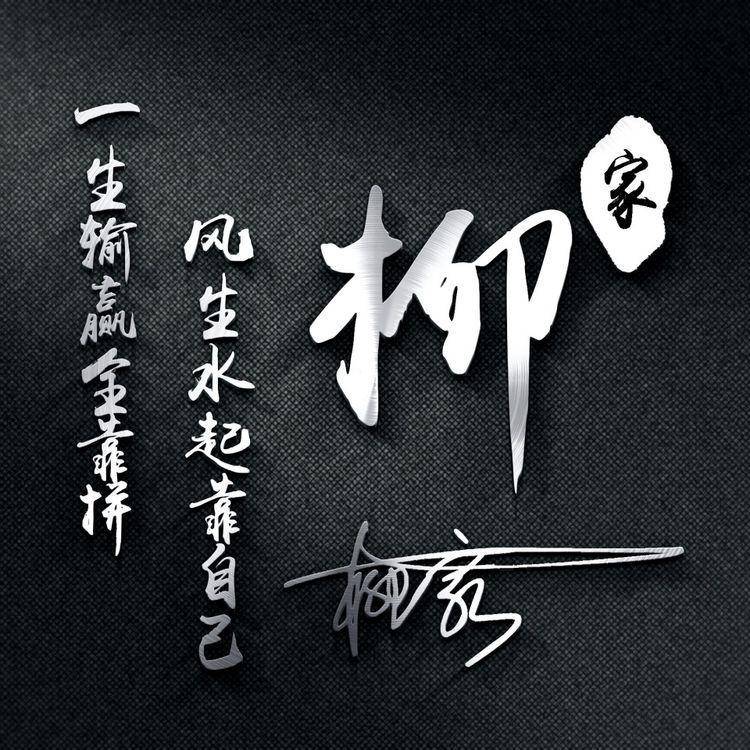 柳
家
风生水起靠自己
一生输赢全靠拼
柳家